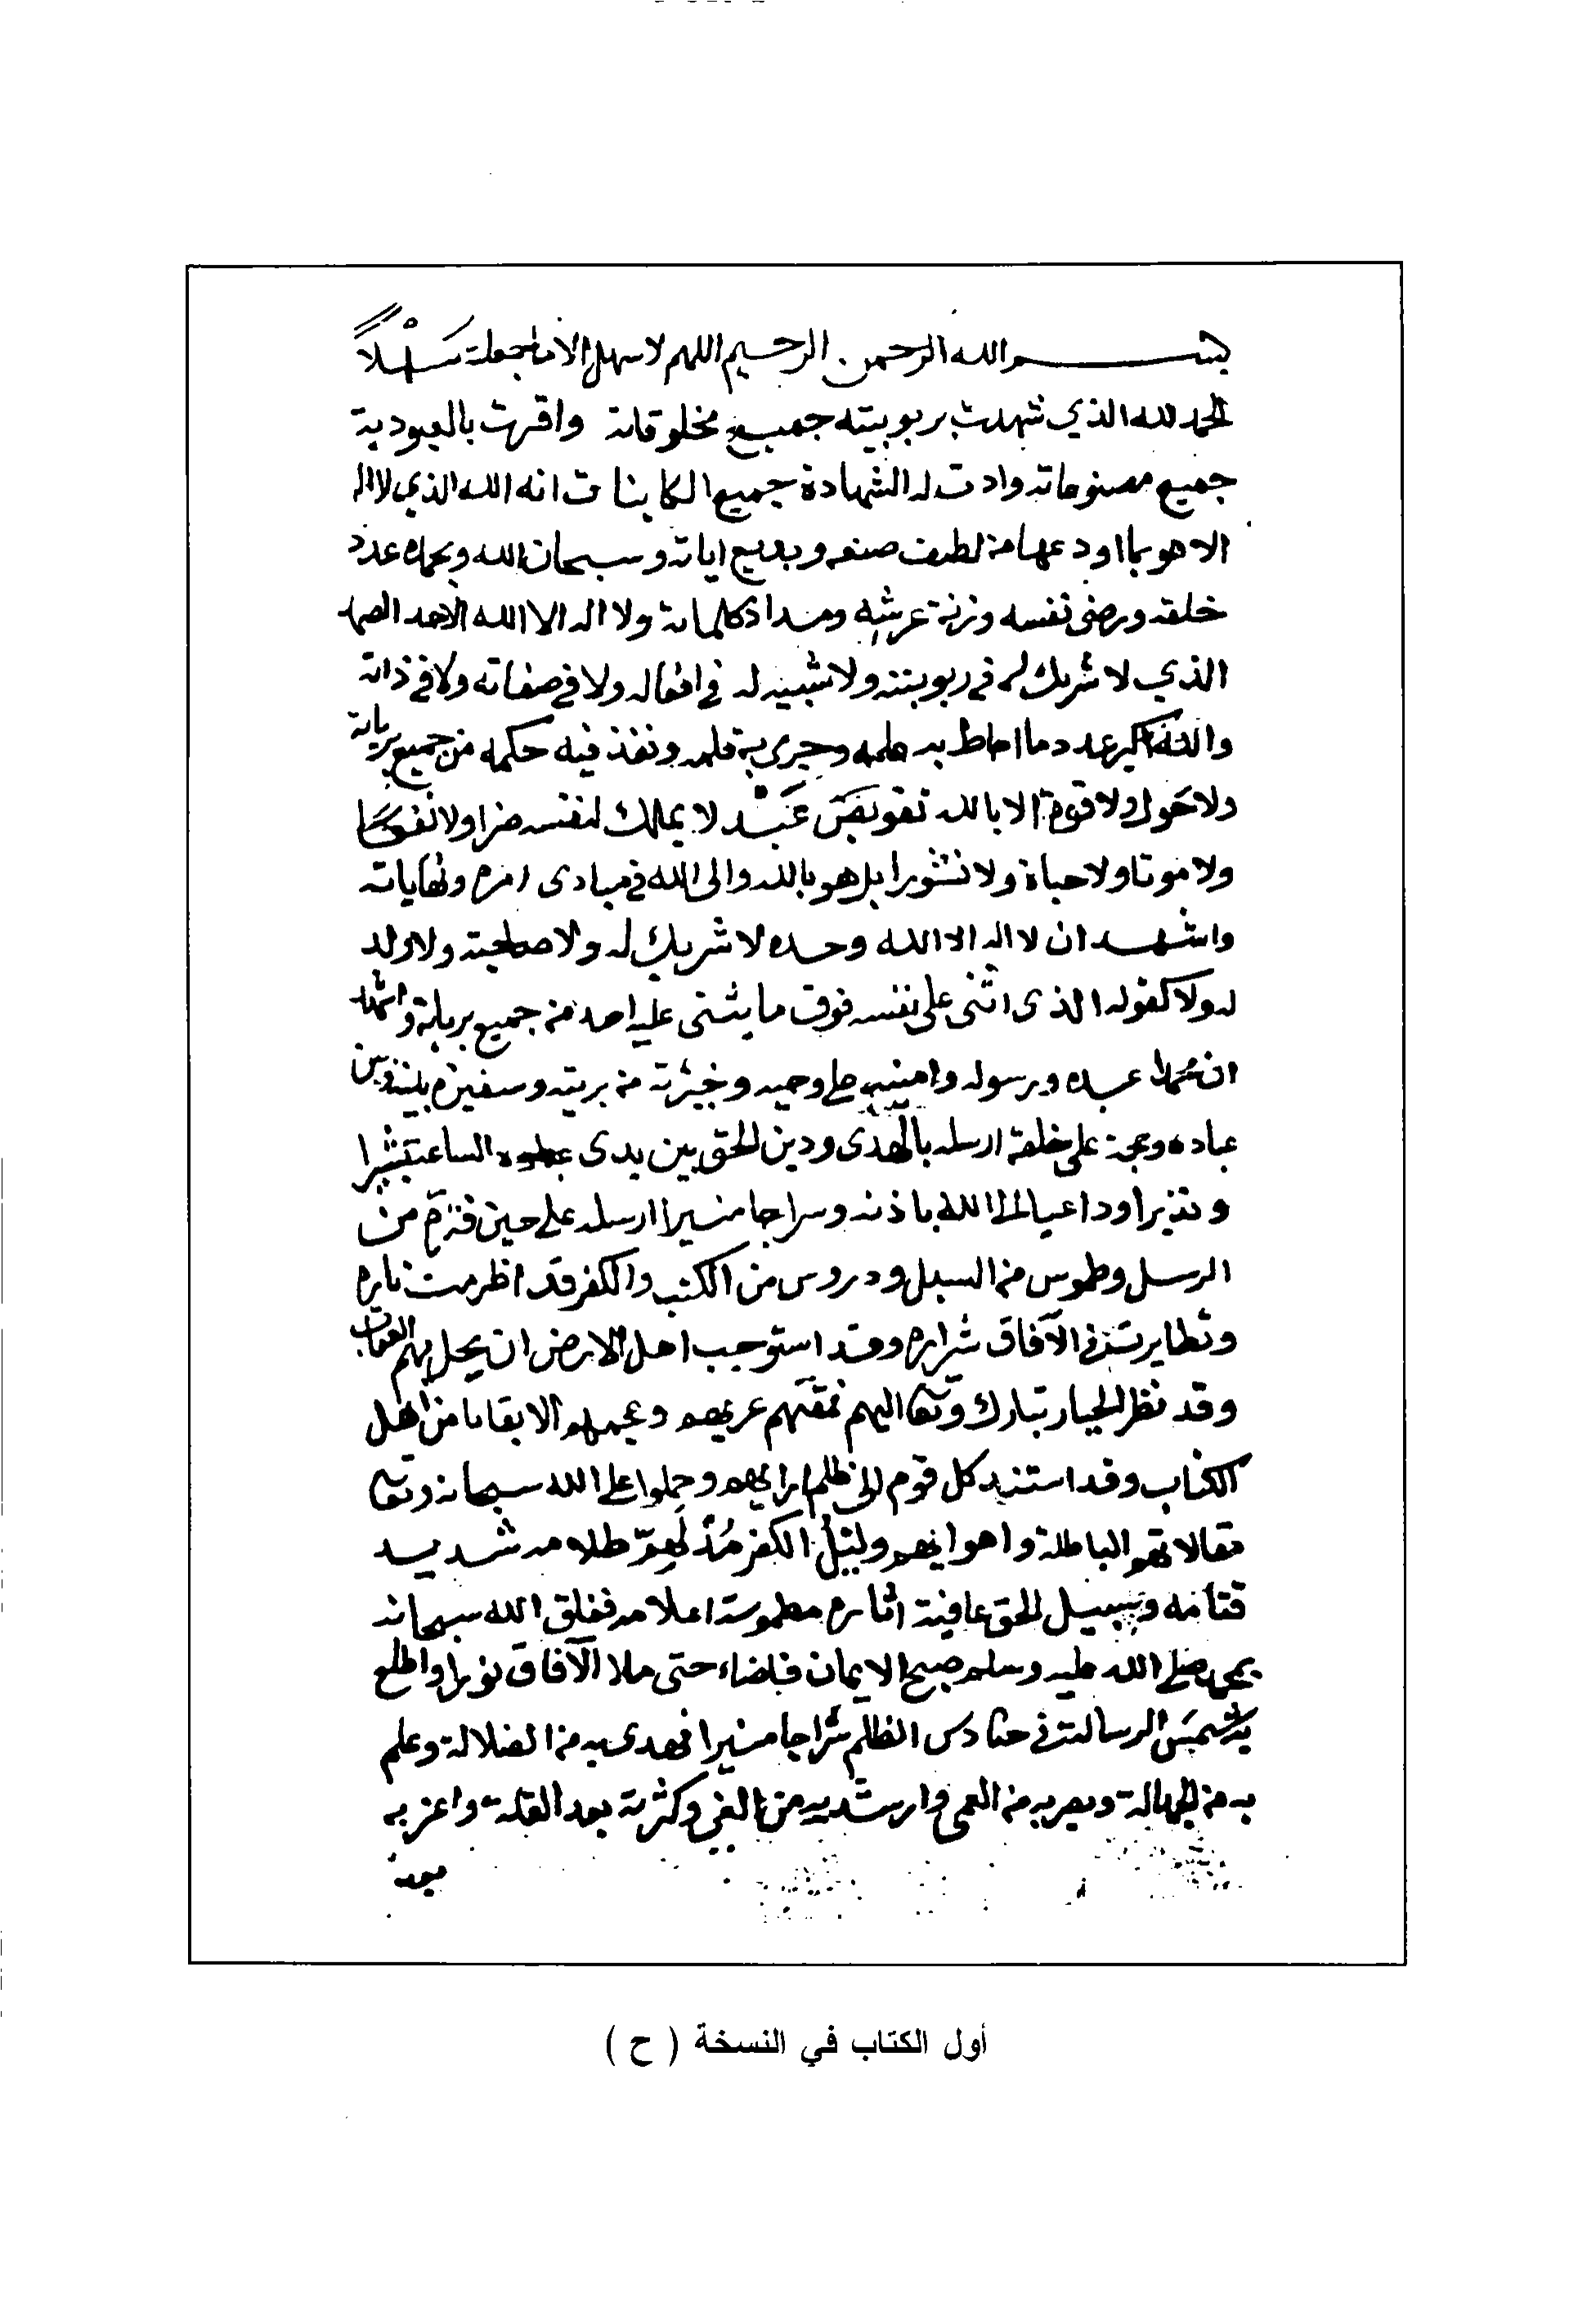 بسم الله الرحمن الرحيم اللهم لا سهل الا ما جعلته سَهْلاً
الحمد لله الذي شهدت بربوبيته جميع مخلوقاته واقرت بالعبودية
جميع مصنوعاته وادت له الشهادة جميع الكاينات انه الله الذي لا اله
الا هو بما اودعها من لطيف صنعه وبديع اياته وسبحان الله وبحمده عدد
خلقه ورضى نفسه وزنة عرشه ومداد كلماته ولا اله الا الله الاحد الصمد
الذي لا شريك له في ربوبيته ولا شبيه له في افعاله ولا في صفاته ولا في ذاته
والله اكبر عدد ما احاط به علمه وجرى به قلمه ونفذ فيه حكمه من جميع برياته
ولا حول ولا قوة الا بالله تفويض عَبْد لا يملك لنفسه ضرا ولا نفعا
ولا موتا ولا حياة ولا نشورا بل هو بالله والى الله في مبادى امره ونهاياته
واشهد ان لا اله الا الله وحده لا شريك له ولا صاحبة ولا ولد
له ولا كفو له الذى اثنى على نفسه فوق ما يثنى عليه احد من جميع برياته واشهد
ان محمدا عبده ورسوله وامينه على وحيه وخيرته من بريته وسفيره بينه وبين
عباده وحجته على خلقه ارسله بالهدى ودين الحق بين يدى الساعة بشيرا
ونذيرا وداعيا الى الله باذنه وسراجا منيرا ارسله على حين فترة من
الرسل وطموس من السبل ودروس من الكتب والكفر قد اظرمت ناره
وتطايرت في الآفاق شراره وقد استوجب اهل الارض ان يحل بهم العقاب
وقد نظر الجبار تبارك وتعا اليهم فمقتهم عربهم وعجمهم الا بقايا من اهل
الكتاب وقد استند كل قوم الى ظلم ارايهم وحملوا على الله سبحانه وتعا
مقالاتهم الباطلة واهوايهم وليل الكفر ظلامه شديد
قتامه وسبيل الحق عافية اثاره مطموسة اعلامه ففلق الله سبحانه
بمحمد صلى الله عليه وسلم صبح الايمان فاضاء حتى ملا الآفاق نورا واطلع
به شمس الرسالة في حنادس الظلم سراجا منيرا فهدى به من الضلالة وعلم
به من الجهالة وبصر به من العمى وارشد به من الغي وكثر به بعد القلة واعز به
بعد
أول الكتاب في النسخة ( ح )